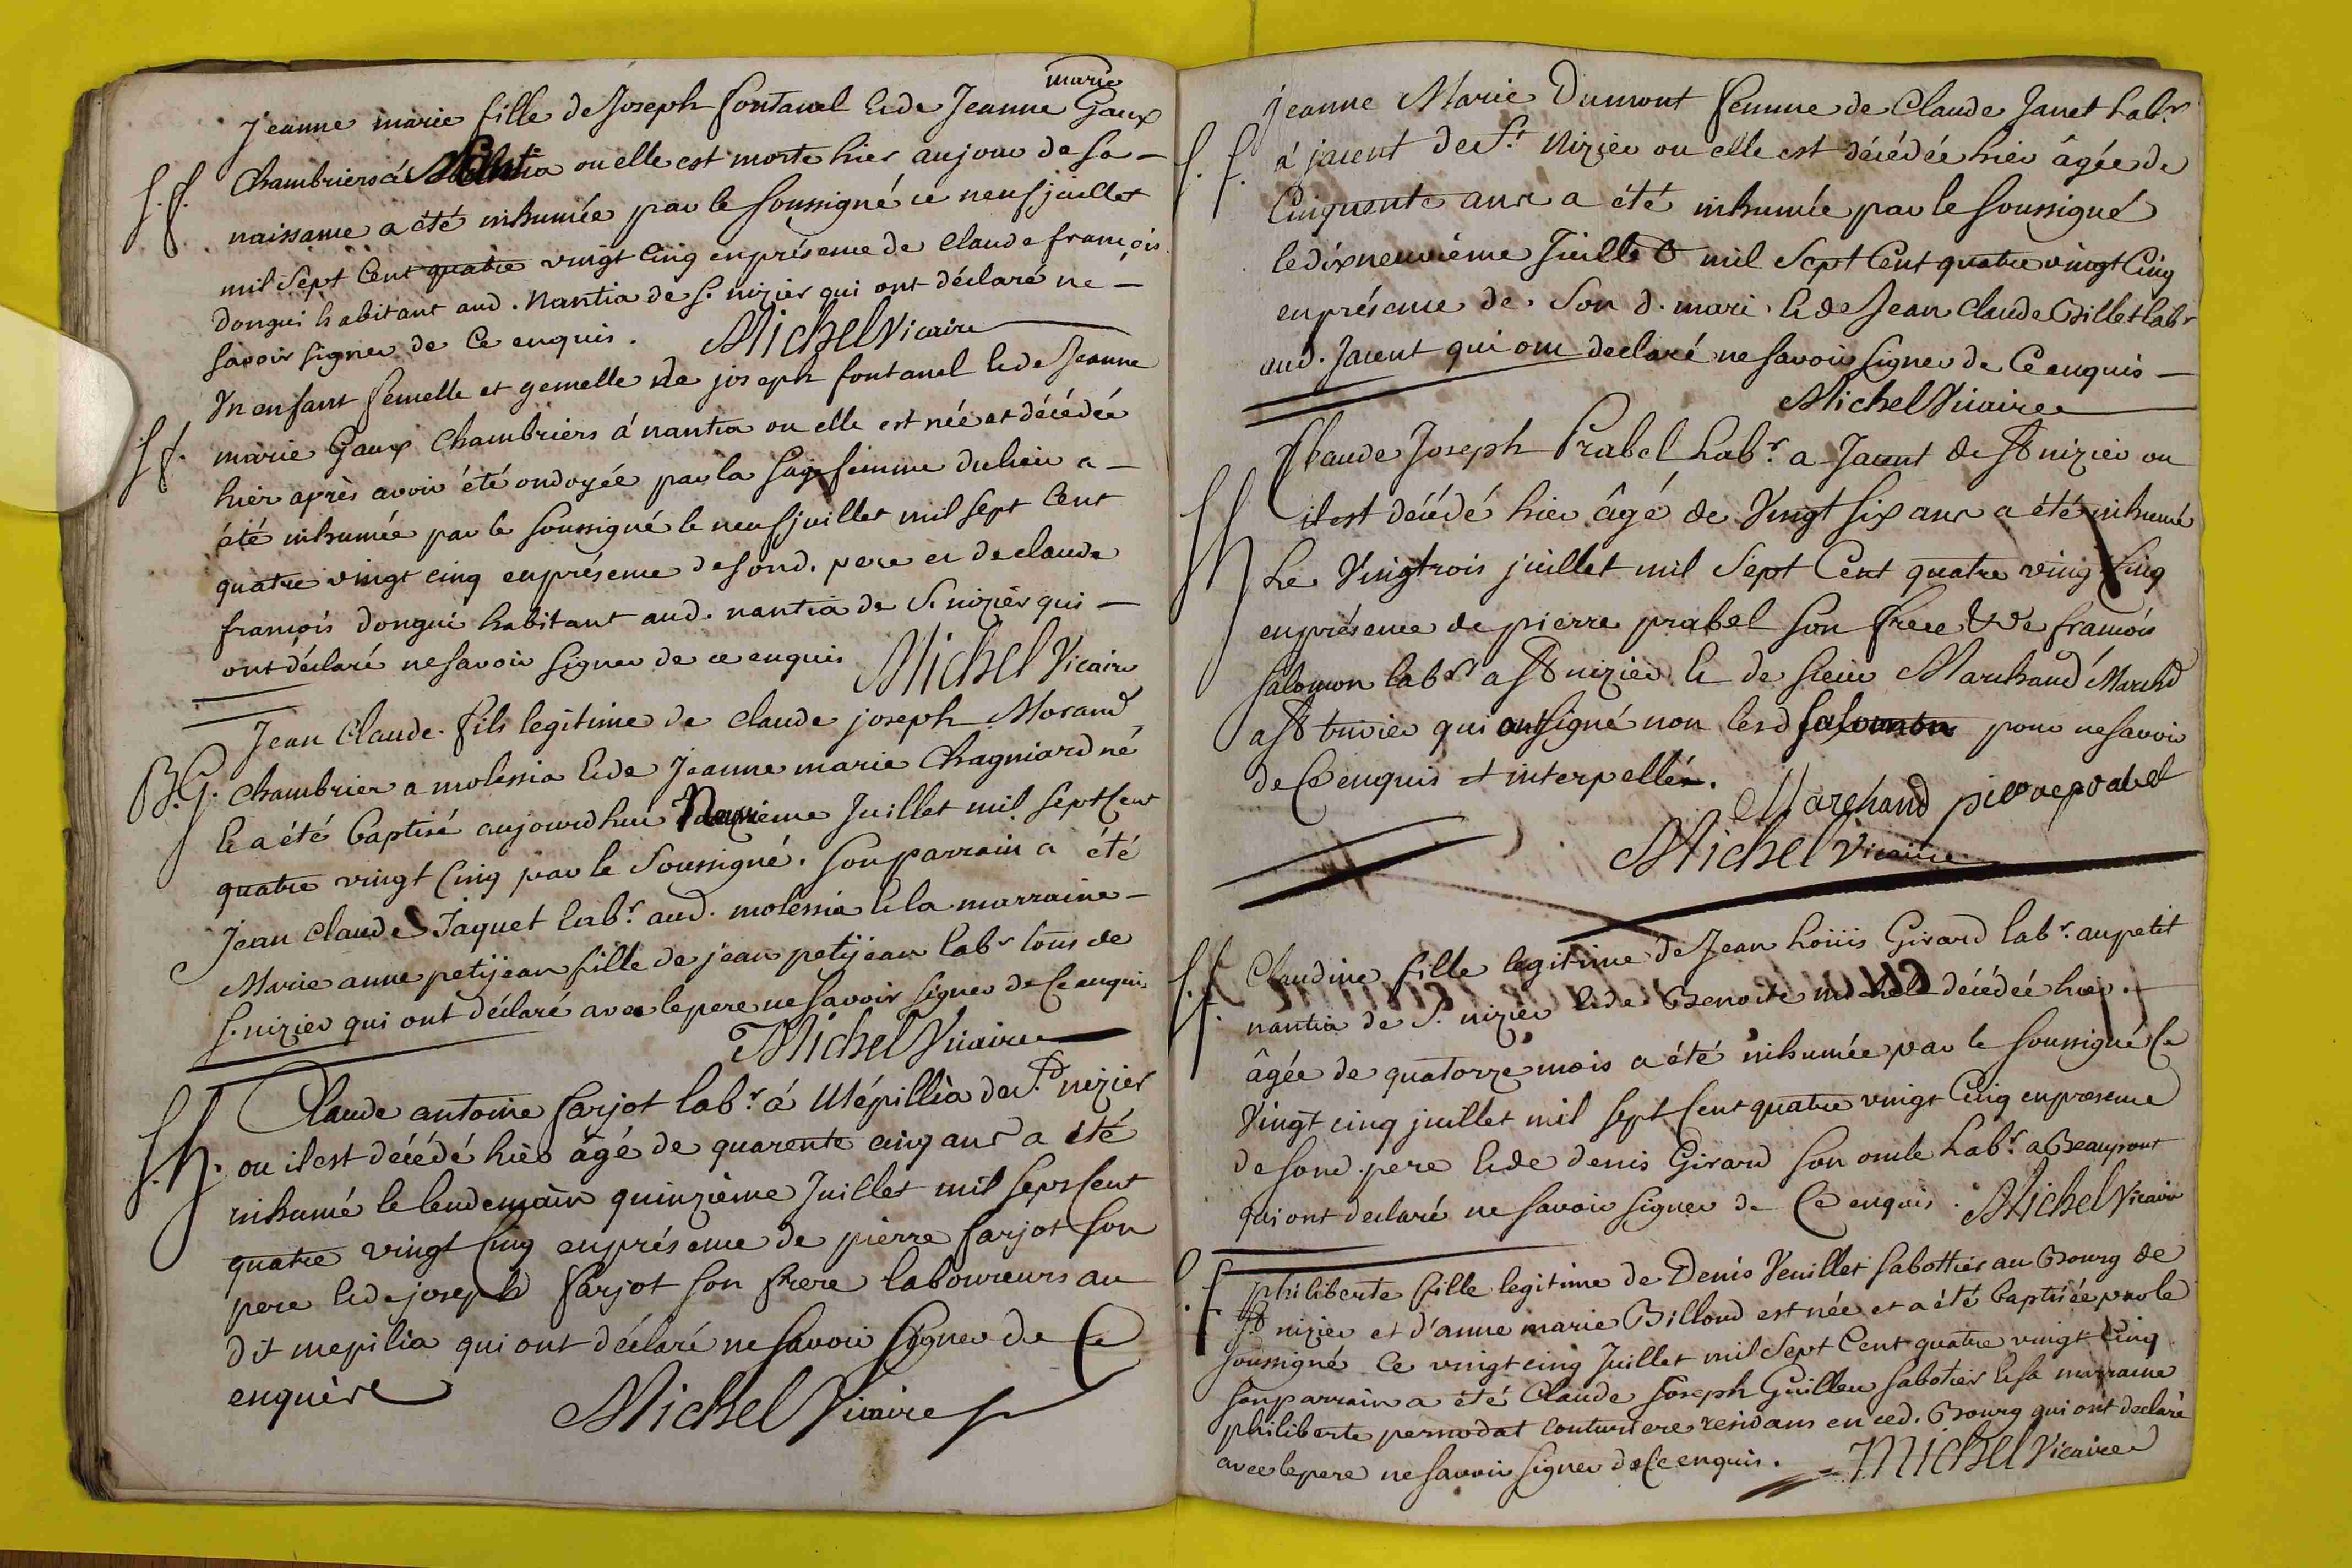 marie
Jeanne marie fille de Joseph fontanel & de Jeanne Gaux
S. f. Chambriers á Nantia ou elle est morte hier au jour de sa –
naissance a été inhumée par le soussigné ce neuf juillet
mil sept Cent quatre vingt Cinq en présence de Claude françois
dongui habitant aud. Nantia de S. nizier qui ont déclaré ne –
savoir signer de Ce enquis. Michel Vicaire
Un enfant femelle et gemelle de joseph fontanel & de Jeanne
S f. marie Gaux Chambriers á nantia ou elle est née et décédée
hier après avoir été ondoyée par la sage femme du lieu a –
été inhumée par le soussigné le neuf juillet mil sept Cent
quatre vingt cinq en présence de sond. pere et de claude
françois dongui habitant aud. nantia de S. nizier qui –
ont déclaré ne savoir signer de ce enquis Michel Vicaire
Jean Claude fils legitime de claude joseph Morand
B. G. Chambrier a molessia & de Jeanne marie Chagniard né
& a été baptisé aujourdhui Juillet mil sept Cent
quatre vingt Cinq par le Soussigné. son parrain a été
Jean Claude Jaquet labr. aud. molessia & la marraine –
Marie anne petijean fille de jean petijean labr tous de
S. nizier qui ont déclaré avec le pere ne savoir signer de Ce enquis
Michel Vicaire
Claude antoine farjot labr. á Mépillia de St. nizier
S. h. ou il est décédé hier âgé de quarente cinq ans a été
inhumé le lendemain quinzième Juillet mil sept Cent
quatre vingt Cinq en présence de pierre farjot son
pere & de joseph farjot son frere laboureurs au
dit mepilia qui ont déclaré ne savoir signer de Ce
enquis
Michel Vicaire
jeanne Marie Dumont femme de Claude Janet Labr
S. f. á jacent de St. Nizier ou elle est décédée hier âgée de
Cinquente ans a été inhumée par le soussigné
le dix neuvième Juillet mil Sept Cent quatre vingt Cinq
en présence de Son d. mari & de Jean Claude labr
aud. Jacent qui ont declaré ne savoir signer de Ce enquis –
Michel Vicaire
Claude Joseph Prabel Labr. a Jacent de St nizier ou
S h il est décédé hier âgé de Vingt six ans a été inhumé
Le Vingtrois juillet mil Sept Cent quatre vingt Cinq
en présence de pierre prabel son frere & de françois
salomon labr a St nizier & de sieur Marchand Marchd
a St trivier qui ont signé non led salomon pour ne savoir
de Ce enquis et interpellés.
Marchand pierre prabel
Michel Vicaire
S. f Claudine fille legitime de Jean Loüis Girard labr. au petit
nantia de S. nizier & de Benoite michel décédée hier. –
âgée de quatorze mois a été inhumée par le soussigné Ce
Vingt cinq juillet mil sept Cent quatre vingt Cinq en présence
de sond. pere & de denis Girard son oncle Labr. a Beaupont
qui ont declaré ne savoir signer de Ce enquis. Michel Vicaire
S. f philiberte fille legitime de Denis Veuillet sabottier au Bourg de
St nizier et d'anne marie Billoud est née et a été baptisée par le
soussigné Ce vingt cinq Juillet mil Sept Cent quatre vingt Cinq
son parrain a été Claude Joseph sabotier & sa marraine
philiberte permodat couturiere residans en ced. Bourg qui ont declaré
avec le pere ne savoir signer de Ce enquis. Michel Vicaire